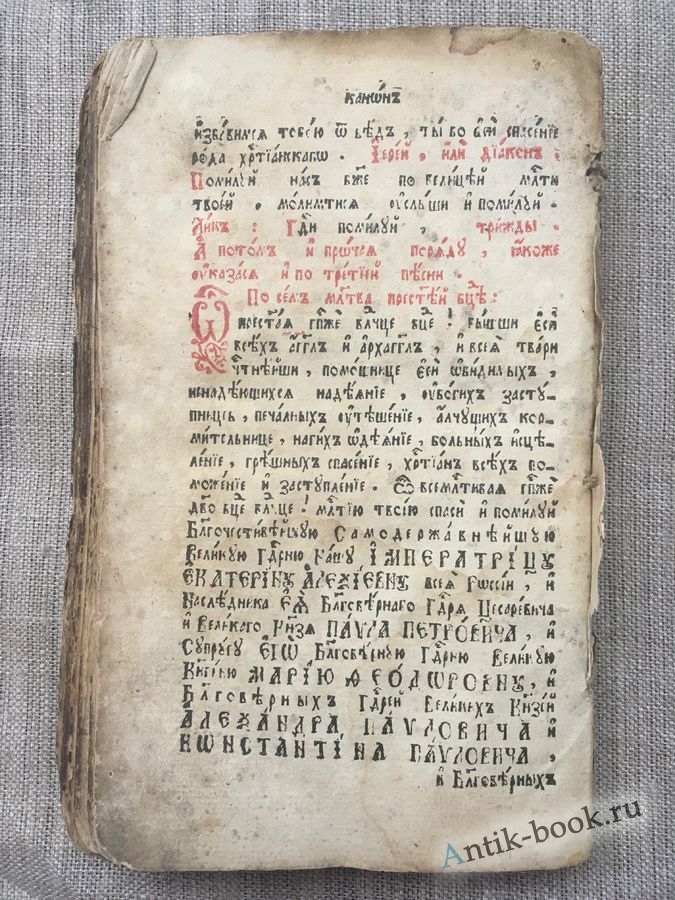 канѡ́нъ
и҆збавимся тобою ѿ бѣдъ, ты бо є҆сѝ спасенїе
рода хрⷭ҇тїанскагѡ. І҆ерей, и҆лѝ дїаконъ:
Помилуй насъ бж҃е по велицѣй млⷭ҇ти
твоей, молимтися ѹ҆слыши и҆ помилуй.
Ликъ: Гдⷭ҇и помилуй, трижды.
А҆ потомъ и҆ прѡчая поряду, ꙗ҆коже
ѹ҆казася и҆ по третїей пѣсни.
По семъ млт҃ва прест҃ѣй бцⷣе:
Ѽ прест҃ая гпⷭ҇же влⷣчце бцⷣе! вышши є҆сѝ
всѣхъ а҆гг҃лъ и҆ а҆рхагг҃лъ, и҆ всея̀ твари
чⷭ҇тнѣйши, помощнице є҆сѝ ѡ҆бидимыхъ,
ненадѣющихся надѣянїе, ѹ҆богихъ засту-
пнице, печалныхъ ѹ҆тѣшенїе, а҆лчущихъ кор-
мительнице, нагихъ ѡ҆дѣянїе, больныхъ и҆сцѣ-
ленїе, грѣшныхъ спасенїе, хрⷭ҇тїанъ всѣхъ по-
моженїе и҆ заступленїе. Ѽ всемлⷭ҇тивая гпⷭ҇же
дв҃о бцⷣе влⷣчце! млⷭ҇тїю твоею спаси и҆ помилуй
Благочестивѣйшую Самодержавнѣйшую
Великую Гдⷭ҇рню нашу И҆МПЕРАТРИЦУ
Є҆КАТЕРИНУ А҆ЛЕѮІЕВНУ всея̀ Рѡссїи, и҆
Наслѣдника Є҆Я̀ Благовѣрнаго Гдⷭ҇ря Цесаревича
и҆ Великаго Кнѧзя ПАУЛА ПЕТРОВИЧА, и҆
Супругу Є҆ГѠ̀ Благовѣрную Гдⷭ҇рню Великую
Кнѧгиню МАРІЮ ѲЕОДѠРОВНУ, и҆
Благовѣрныхъ Гдⷭ҇рей Великихъ Кнѧзей
А҆ЛЕѮАНДРА ПАУЛОВИЧА и҆
КѠНСТАНТІНА ПАУЛОВИЧА,
и҆ Благовѣрныхъ
Antik-book.ru